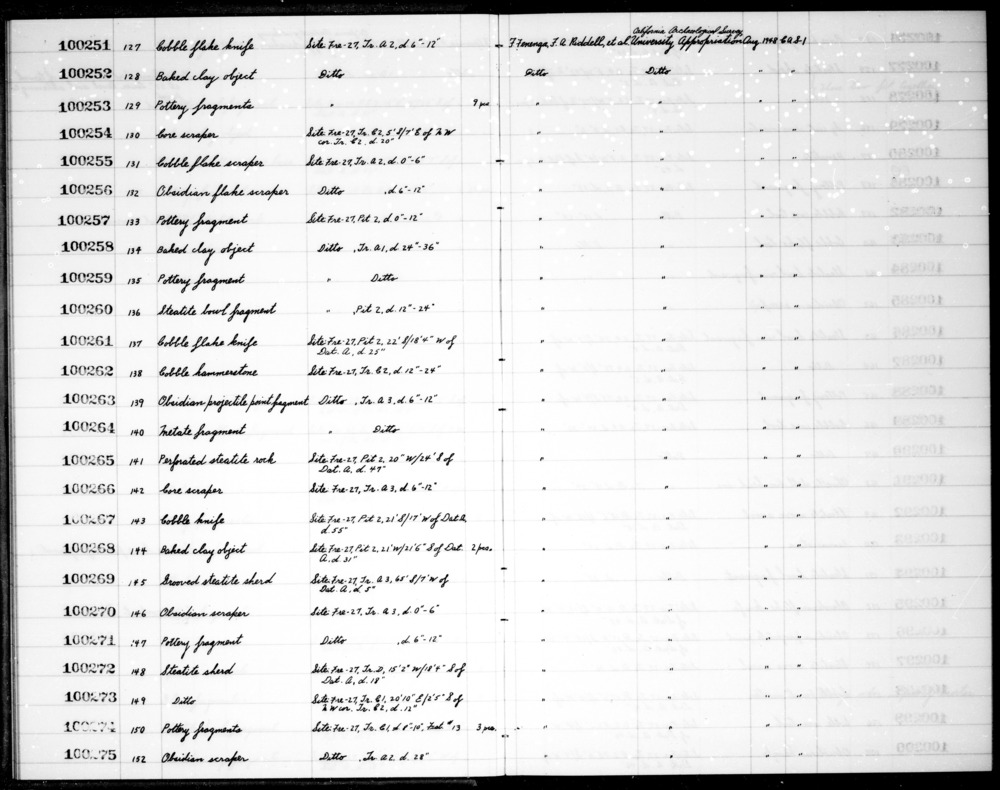 California Archeological Survey
100251 127 Cobble flake knife Site Fre-27, Tr. A2, d. 6"-12" F Fenenga, F. A. Riddell, et al. University Appropriation Aug 1948 CAS-1
100252 128 Baked clay object Ditto Ditto Ditto " "
100253 129 Pottery fragments " 9 pcs. " " " "
100254 130 Core scraper Site Fre-27, Tr. C2, 5' S/7' E of N W " " " "
cor. Tr. C2, d. 20"
100255 131 Cobble flake scraper Site Fre-27, Tr. A2, d. 0"-6" " " " "
100256 132 Obsidian flake scraper Ditto , d. 6"-12" " " " "
100257 133 Pottery fragment Site Fre-27, Pit 2, d. 0"-12" " " " "
100258 134 Baked clay object Ditto , Tr. A1, d. 24"-36" " " " "
100259 135 Pottery fragment " Ditto " " " "
100260 136 Steatite bowl fragment " , Pit 2, d. 12"-24" " " " "
100261 137 Cobble flake knife Site Fre-27, Pit 2, 22' S/18'4" W of " " " "
Dat. A, d. 25"
100262 138 Cobble hammerstone Site Fre-27, Tr. C2, d. 12"-24" " " " "
100263 139 Obsidian projectile point fragment Ditto , Tr. A3, d. 6"-12" " " " "
100264 140 Metate fragment " Ditto " " " "
100265 141 Perforated steatite rock Site Fre-27, Pit 2, 20" W/24' S of " " " "
Dat. A, d. 47"
100266 142 Core scraper Site Fre-27, Tr. A3, d. 6"-12" " " " "
100267 143 Cobble knife Site Fre-27, Pit 2, 21' S/17' W of Dat A, " " " "
d. 55"
100268 144 Baked clay object Site Fre-27, Pit 2, 21' W/21'6" S of Dat. 2 pcs. " " " "
A, d. 31"
100269 145 Grooved steatite sherd Site Fre-27, Tr. A3, 65' S/7' W of " " " "
Dat. A, d. 5"
100270 146 Obsidian scraper Site Fre-27, Tr. A3, d. 0"-6" " " " "
100271 147 Pottery fragment Ditto , d. 6"-12" " " " "
100272 148 Steatite sherd Site Fre-27, Tr. D, 15'2" W/18'4" S of " " " "
Dat. A, d. 18"
100273 149 Ditto Site Fre-27, Tr. C1, 20'10" E/2'5" S of " " " "
N W cor. Tr. C2, d. 12"
100274 150 Pottery fragments Site Fre-27, Tr. C1, d 8"-10", Feat. #13 3 pcs. " " " "
100275 152 Obsidian scraper Ditto , Tr. A2, d. 28" " " " "